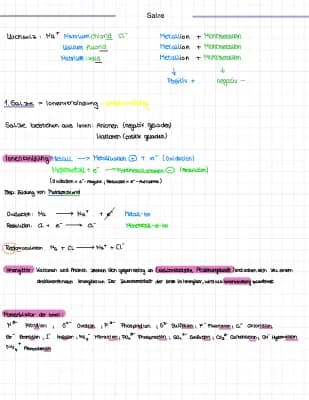 Salze
Kochsalz: Na⁺ Natriumchlorid Cl⁻ Metallion + Nichtmetallion
Kaliumfluorid Metallion + Nichtmetallion
Natriumiodid Metallion + Nichtmetallion
↓ ↓
Positiv + negativ -
1. Salze = Ionenverbindung
Salze bestehen aus Ionen: Anionen (negativ geladen)
Kationen (positiv geladen)
Ionenbildung: Metall → Metallkation ⊕ + e⁻ (Oxidation)
Nichtmetall + e⁻ → Nichtmetallanion ⊖ (Reduktion)
(Oxidation = e⁻-Abgabe; Reduktion = e⁻-Aufnahme)
Bsp. Bildung von
Oxidation: Na → Na⁺ + e⁻ Metall-Ion
Reduktion: Cl + e⁻ → Cl⁻ Nichtmetall-Ion
Redoxreaktion Na + Cl → Na⁺ + Cl⁻
Ionengitter: Kationen und Anionen ziehen sich gegenseitig an und ordnen sich zu einem
dreidimensionalen Ionengitter an. Der Zusammenhalt der Ionen im Ionengitter, wird als Ionenbindung bezeichnet.
Nomenklatur der Ionen:
N³⁻ Nitridion ; O²⁻ Oxidion ; P³⁻ Phosphidion ; S²⁻ Sulfidion ; F⁻ Fluoridion ; Cl⁻ Chloridion ;
Br⁻ Bromidion ; I⁻ Iodidion ; NO₃⁻ Nitration ; PO₄³⁻ Phosphation ; SO₄²⁻ Sulfation ; CO₃²⁻ Carbonation ; OH⁻ Hydroxidion
NH₄⁺ Ammoniumion